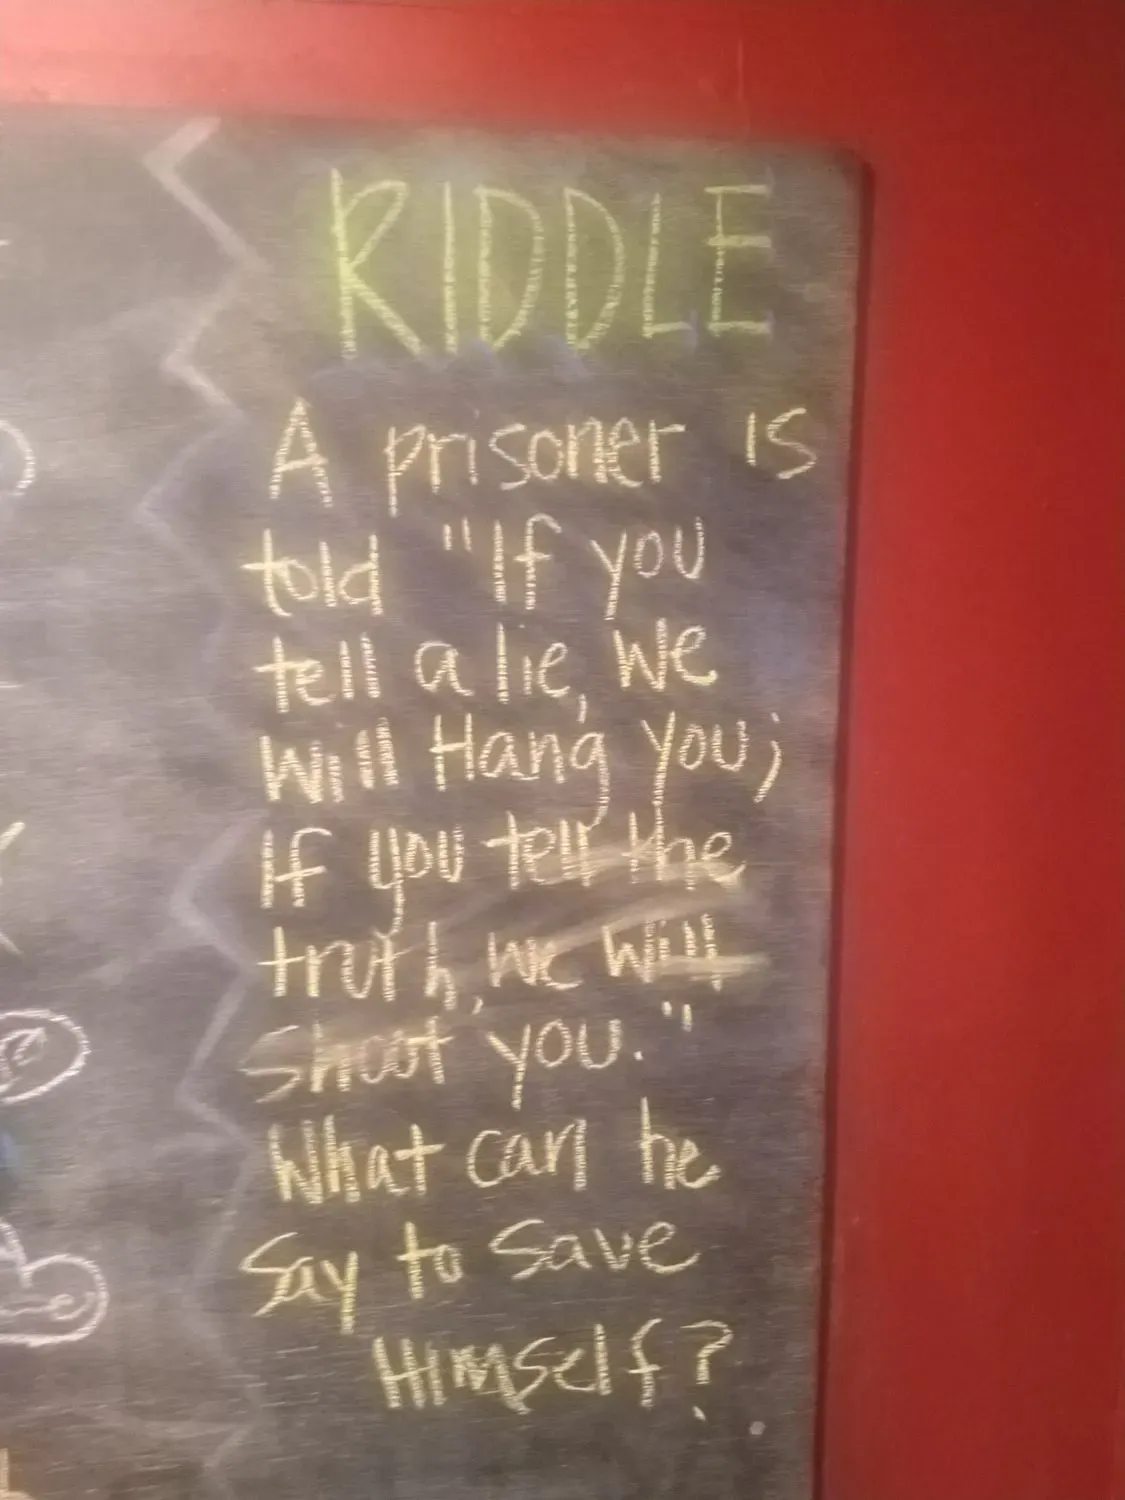 RIDDLE
A prisoner is
told "If you
tell a lie, we
will Hang you;
If you tell the
truth, we will
shoot you."
What can he
say to save
Himself?